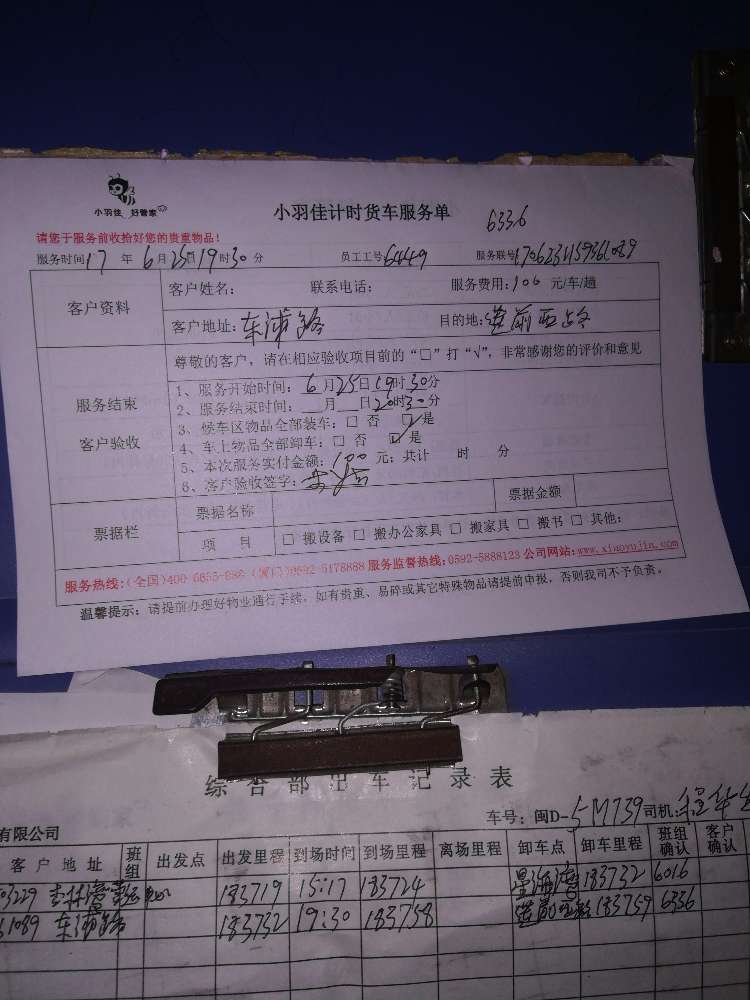 小羽佳 好管家
小羽佳计时货车服务单
6336
请您于服务前收拾好您的贵重物品!
服务时间17年6月25日19时30分 员工工号6449 服务联号
客户资料
客户姓名: 联系电话: 服务费用:100元/车/趟
客户地址:东浦路 目的地:莲前西路
服务结束
客户验收
尊敬的客户,请在相应验收项目前的“□”打“√”,非常感谢您的评价和意见
1、服务开始时间:6月25日19时30分
2、服务结束时间:__月__日20时30分
3、候车区物品全部装车:□ 否 ☑ 是
4、车上物品全部卸车:□ 否 ☑ 是
5、本次服务实付金额:100元;共计 时 分
6、客户验收签字:
票据栏
票据名称 票据金额
项 目 □ 搬设备 □ 搬办公家具 □ 搬家具 □ 搬书 □ 其他:
服务热线:(全国)400-6855-886 (厦门)0592-5178888 服务监督热线:0592-5888123 公司网站:www.xiaoyujia.com
温馨提示:请提前办理好物业通行手续,如有贵重、易碎或其它特殊物品请提前申报,否则我司不予负责。
综合部出车记录表
车号:闽D-5M739 司机:
有限公司
客户地址 班组 出发点 出发里程 到场时间 到场里程 离场里程 卸车点 卸车里程 班组确认 客户确认
03229 183719 15:17 183724 183732 6016
61089 东浦路 183732 19:30 183758 莲前西路 183759 6336